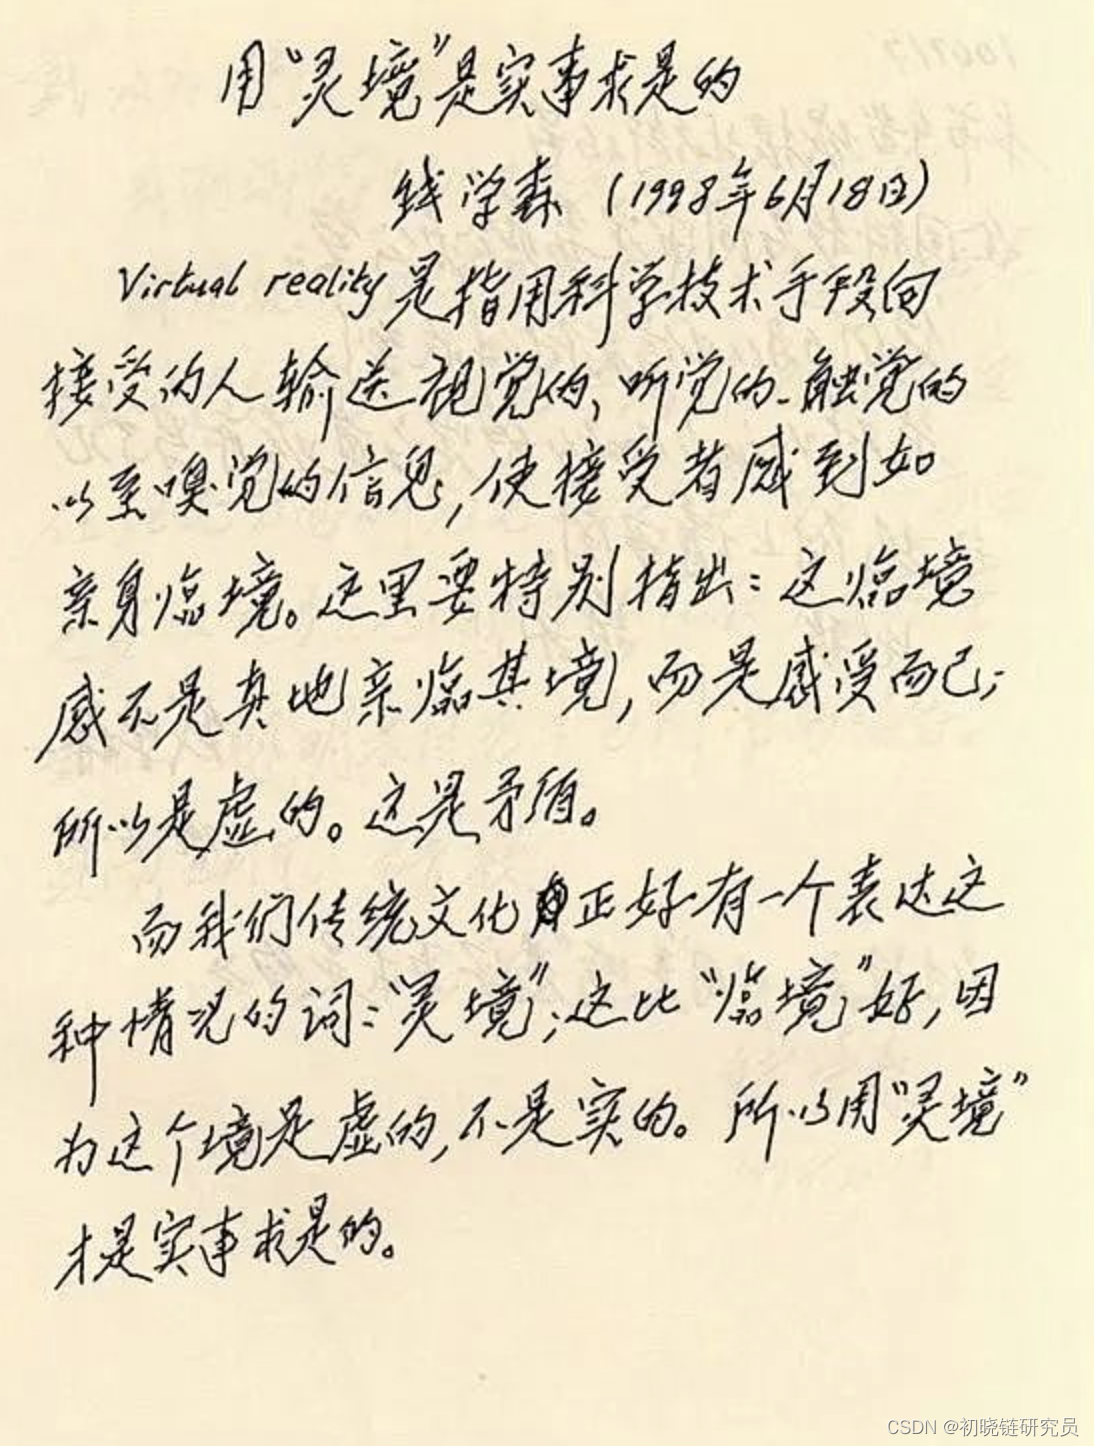 用“灵境”是实事求是的
钱学森（1998年6月18日）
Virtual reality是指用科学技术手段向
接受的人输送视觉的、听觉的、触觉的
以至嗅觉的信息，使接受者感到如
亲身临境。这里要特别指出：这临境
感不是真地亲临其境，而是感受而已；
所以是虚的。这是矛盾。
而我们传统文化正好有一个表达这
种情况的词：“灵境”；这比“临境”好，因
为这个境是虚的，不是实的。所以用“灵境”
才是实事求是的。
CSDN @初晓链研究员